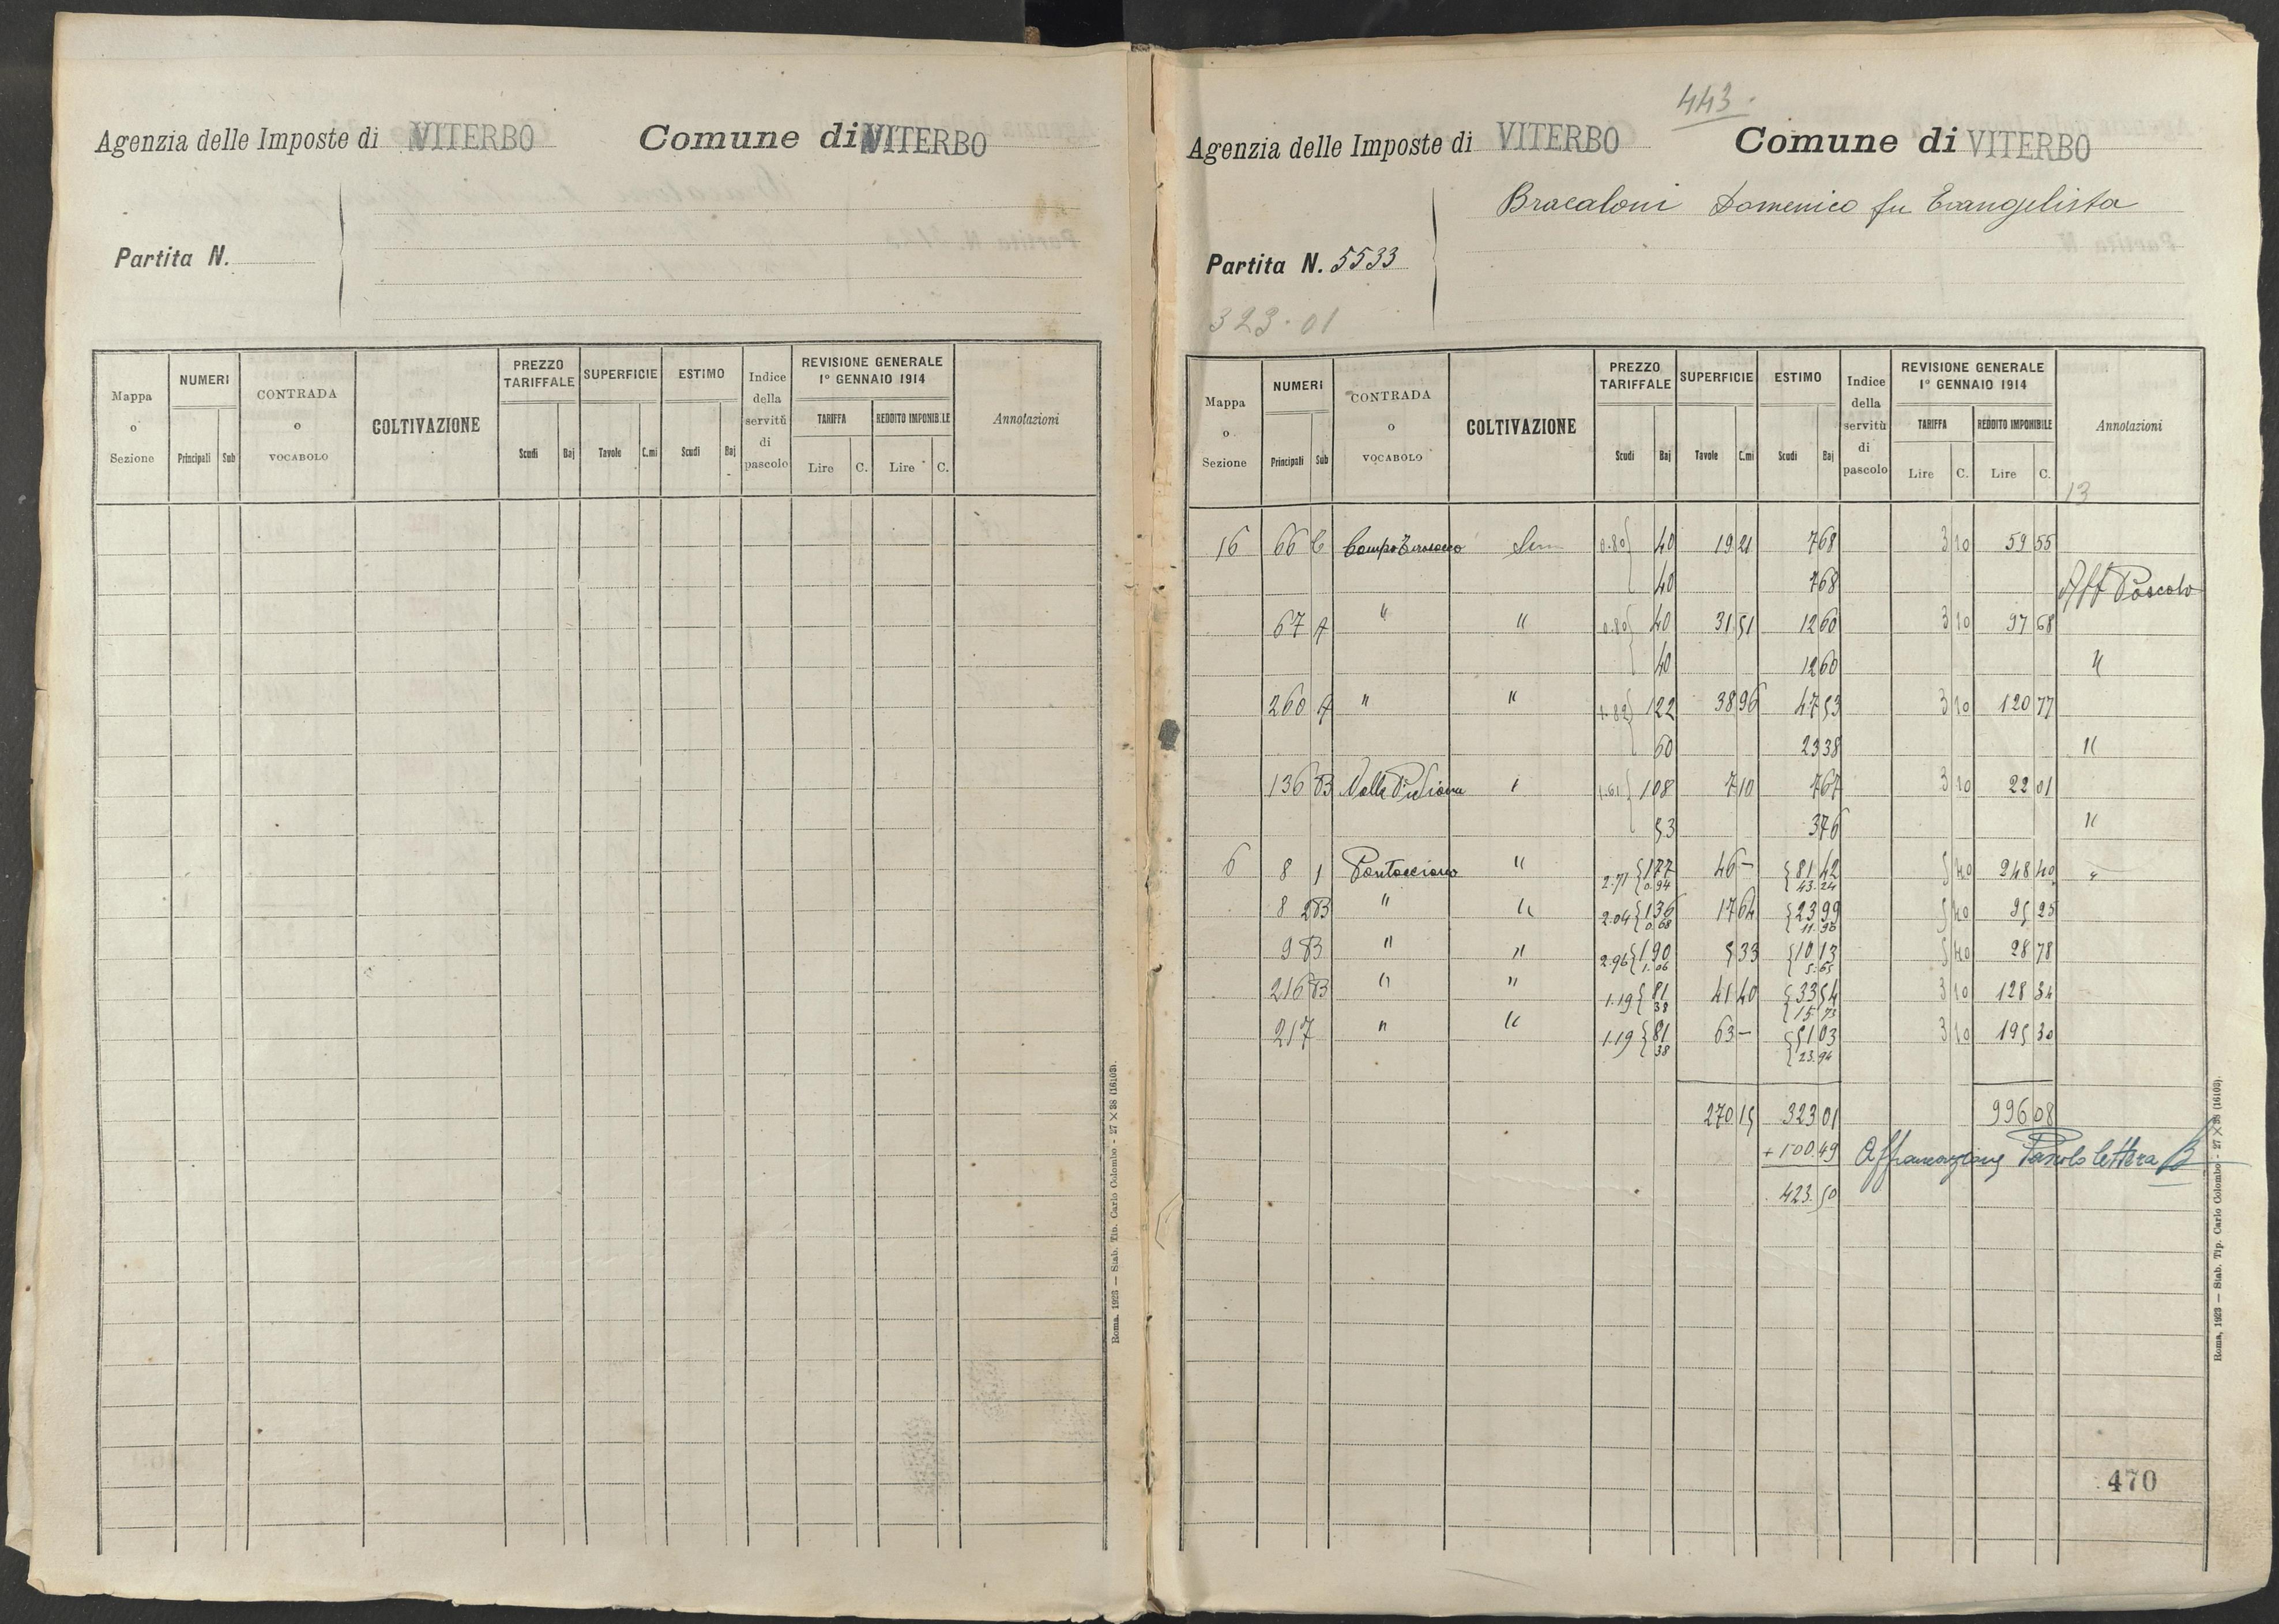 Agenzia delle Imposte di VITERBO Comune di VITERBO
Partita N.
Mappa o Sezione
NUMERI
Principali Sub
CONTRADA o VOCABOLO
COLTIVAZIONE
PREZZO TARIFFALE
Scudi Baj
SUPERFICIE
Tavole C.mi
ESTIMO
Scudi Baj
Indice della servitù di pascolo
REVISIONE GENERALE 1° GENNAIO 1914
TARIFFA REDDITO IMPONIBILE
Lire C. Lire C.
Annotazioni
Roma, 1923 — Stab. Tip. Carlo Colombo - 27 × 38 (16103).
443.
Agenzia delle Imposte di VITERBO Comune di VITERBO
Bracaloni Domenico fu Evangelista
Partita N. 5533
323.01
Mappa o Sezione
NUMERI
Principali Sub
CONTRADA o VOCABOLO
COLTIVAZIONE
PREZZO TARIFFALE
Scudi Baj
SUPERFICIE
Tavole C.mi
ESTIMO
Scudi Baj
Indice della servitù di pascolo
REVISIONE GENERALE 1° GENNAIO 1914
TARIFFA REDDITO IMPONIBILE
Lire C. Lire C.
Annotazioni
13
16 66 C Campo Sem 0.80 40 19 21 7 68 3 10 59 55
40 7 68 Aff Pascolo
67 A " " 0.80 40 31 51 12 60 3 10 97 68
40 12 60 "
260 A " " 1.82 122 38 96 47 53 3 10 120 77
60 23 38 "
136 B Valle " 1.61 108 7 10 7 67 3 10 22 01
53 3 76 "
6 8 1 Pontecciano " 2.71 { 1 77 46 - { 81 42 5 40 248 40 "
0.94 43.24
8 2B " " 2.04 { 1 36 17 64 { 23 99 5 40 95 25
0.68 11.96
9 B " " 2.96 { 1 90 5 33 { 10 13 5 40 28 78
1.06 5.65
216 B " " 1.19 { 81 41 40 { 33 54 3 10 128 34
38 15 73
217 " " 1.19 { 81 63 - { 51 03 3 10 195 30
38 23.94
270 15 323 01 996 08
+ 100.49 Affrancazione Pascolo lettera B
423.50
470
Roma, 1923 — Stab. Tip. Carlo Colombo - 27 × 38 (16103).